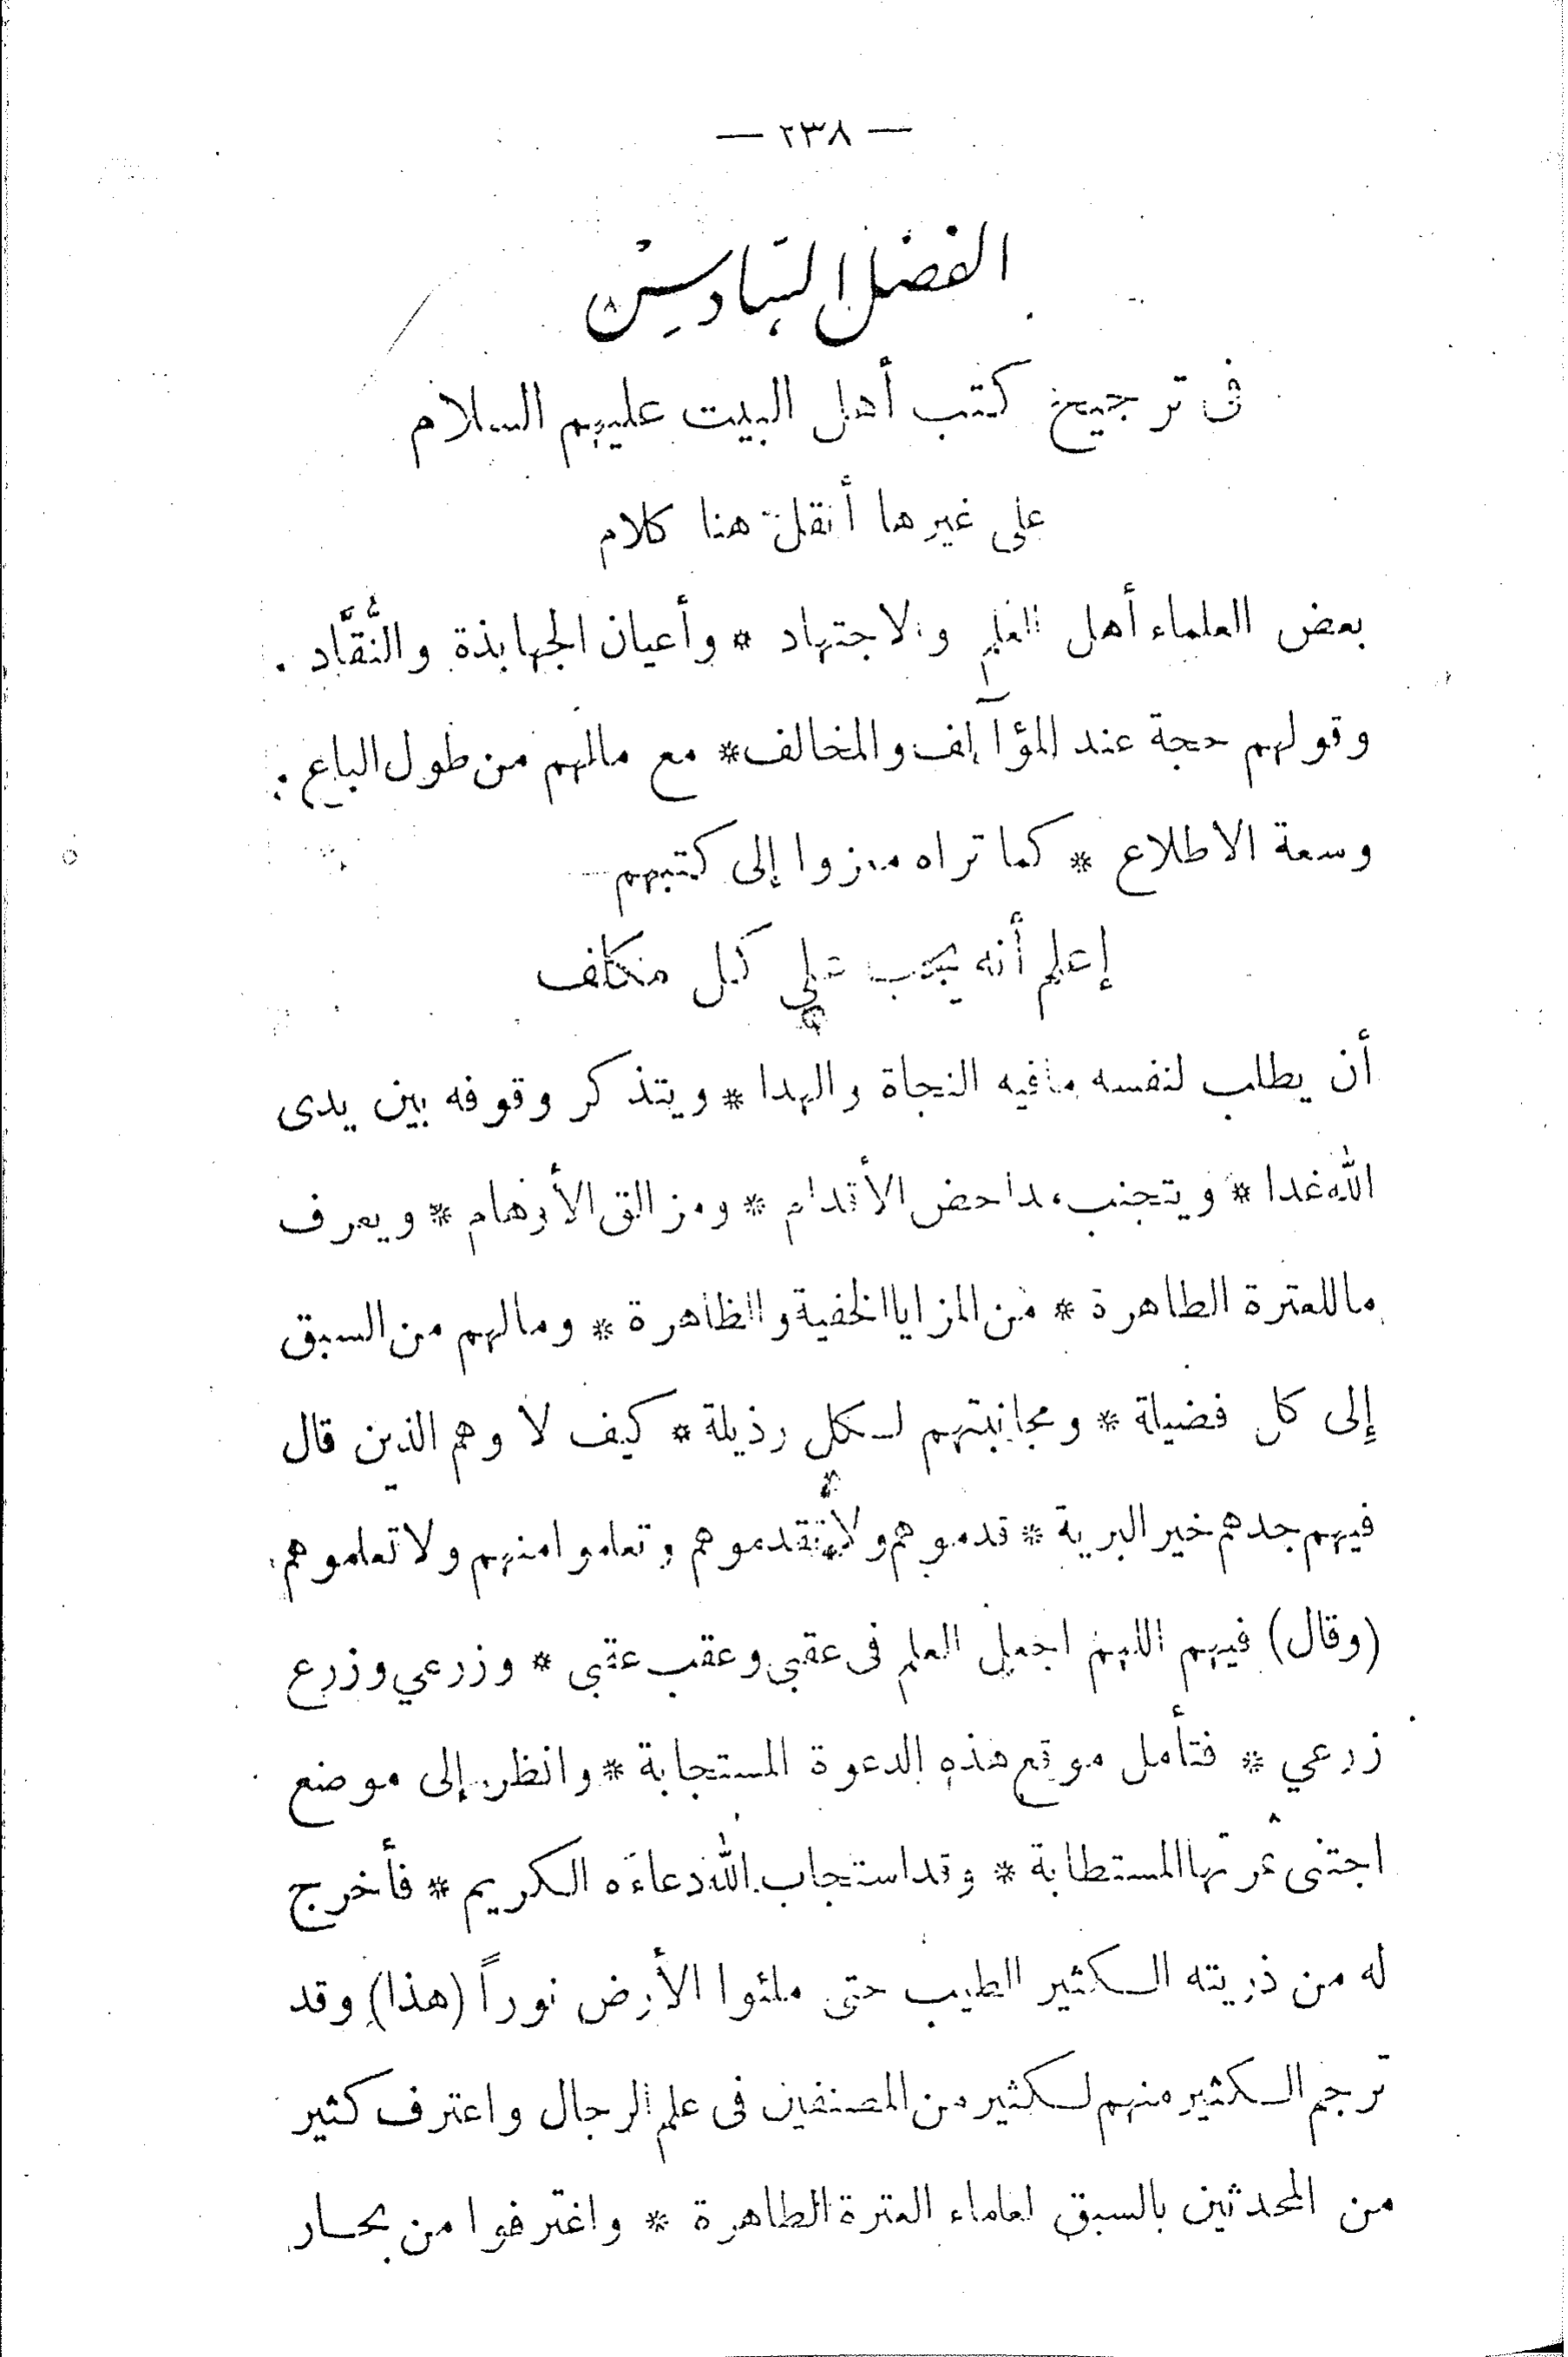 — ٢٣٨ —
الفصل السادس
فى ترجيح كتب أهل البيت عليهم السلام
على غيرها أنقل هنا كلام
بعض العلماء أهل العلم والاجتهاد * وأعيان الجهابذة والنُّقَّاد .
وقولهم حجة عند المؤآلف والمخالف * مع مالهم من طول الباع .
وسعة الاطلاع * كما تراه معزوا إلى كتبهم
إعلم أنه يجب على كل مكلف
أن يطلب لنفسه مافيه النجاة والهدا * ويتذكر وقوفه بين يدى
الله غدا * ويتجنب مداحض الأقدام * ومزالق الأوهام * ويعرف
ماللعترة الطاهرة * من المزايا الخفية والظاهرة * ومالهم من السبق
إلى كل فضيلة * ومجانبتهم لكل رذيلة * كيف لا وهم الذين قال
فيهم جدهم خير البرية * قدموهم ولا تقدموهم وتعلموا منهم ولا تعلموهم
(وقال) فيهم اللهم اجعل العلم فى عقبى وعقب عقبى * وزرعي وزرع
زرعي * فتأمل موقع هذه الدعوة المستجابة * وانظر إلى موضع
اجتنى ثمرتها المستطابة * وقد استجاب الله دعاءَه الكريم * فأخرج
له من ذريته الكثير الطيب حتى ملئوا الأرض نوراً (هذا) وقد
ترجم الكثير منهم لكثير من المصنفين فى علم الرجال واعترف كثير
من المحدثين بالسبق لعلماء العترة الطاهرة * واغترفوا من بحار